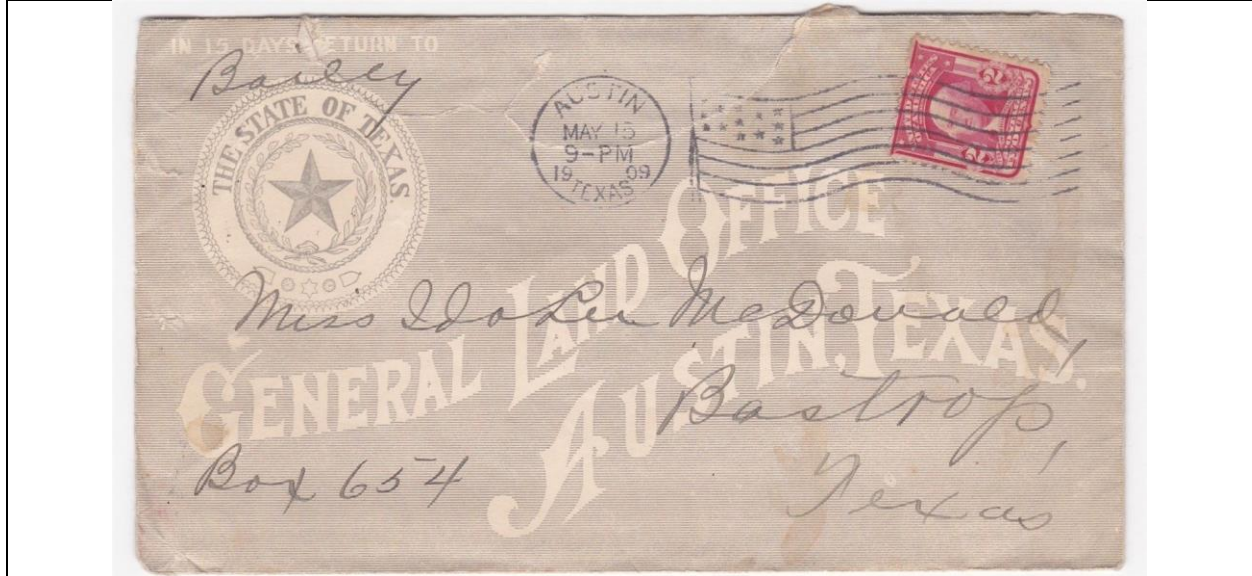 IN 15 DAYS RETURN TO
Bailey
THE STATE OF TEXAS
AUSTIN
MAY 15
9-PM
1909
TEXAS
2 2
GENERAL LAND OFFICE
AUSTIN, TEXAS.
Miss Ida Lee McDonald,
Bastrop,
Texas
Box 654